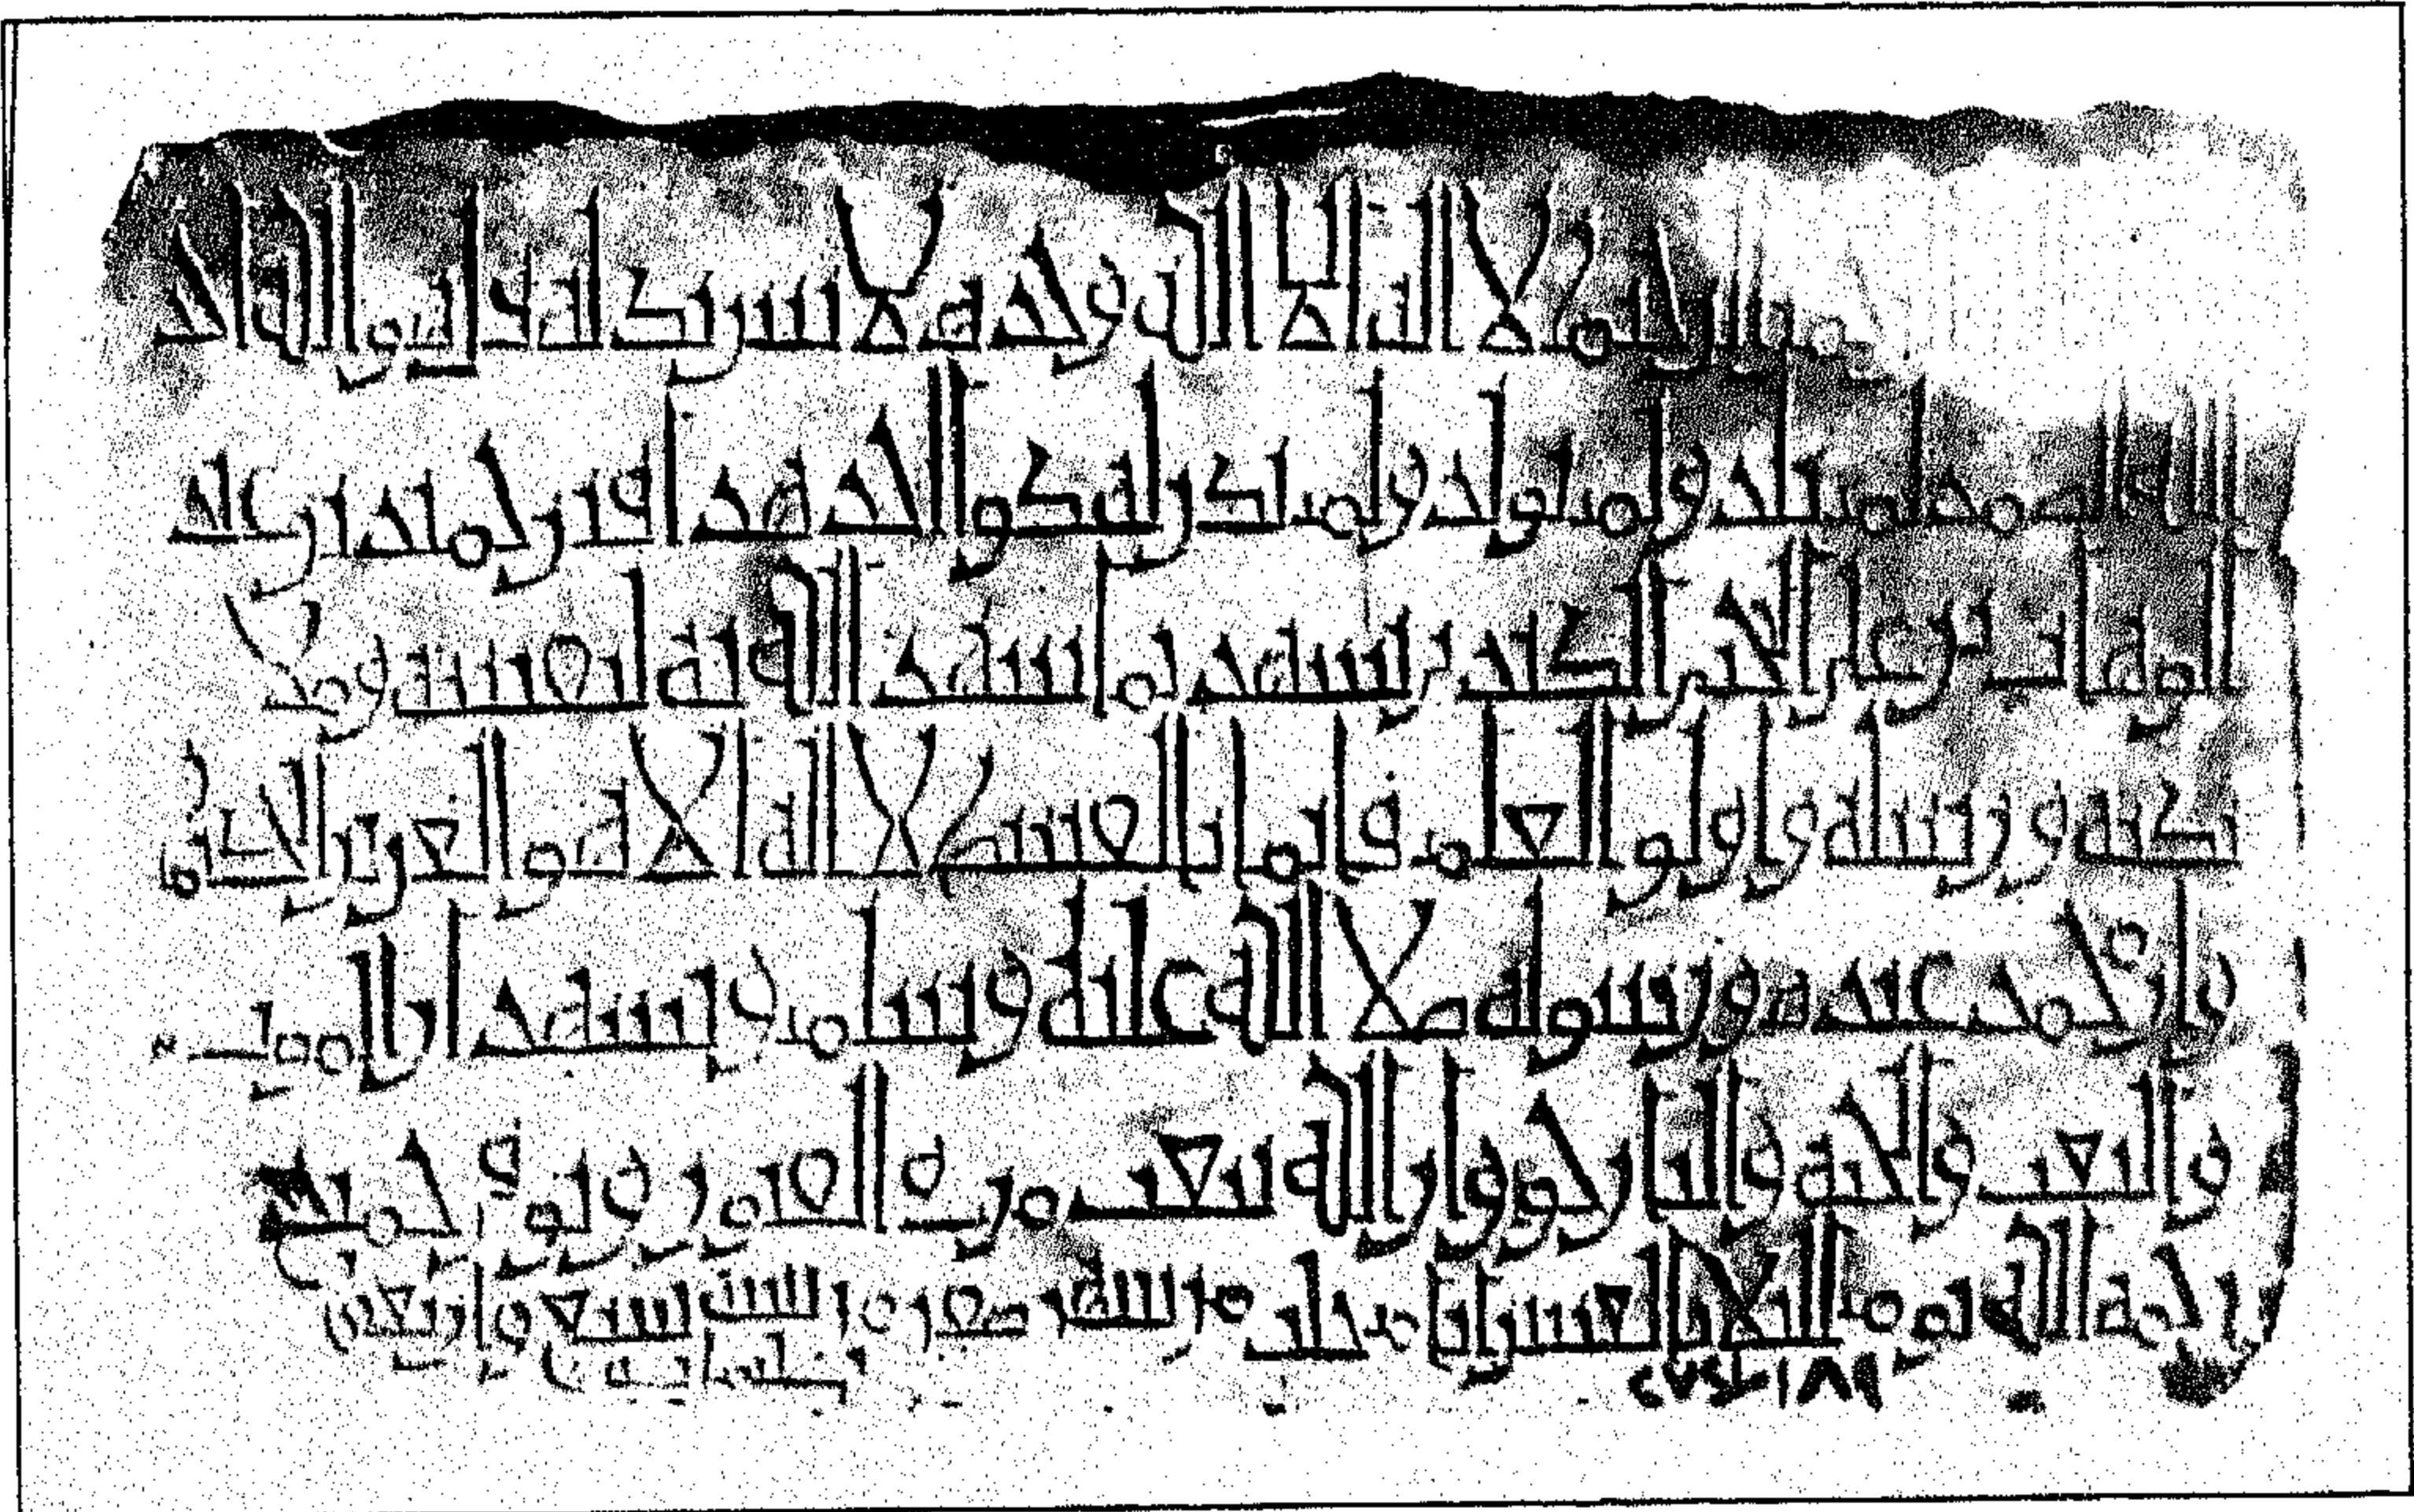 حمن الرحيم لا اله الا الله وحده لا شريك له قل هو الله احد
الله الصمد لم يلد ولم يولد ولم يكن له كفوا احد هذا قبر محمد بن عبد
الوهاب بن الكندي يشهد بما شهد الله به لنفسه وملا
ئكته ورسله واولوا العلم قايما بالقسط لا اله الا هو العزيز الحكيم
وان محمد عبده ورسوله صلا الله عليه وسلم ويشهد ان الموت
والبعث والجنة والنار حق وان الله يبعث من في القبور توفي محمد
رحمة الله يوم الثلاثا خلت من شهر صفر من سنة تسع واربعين